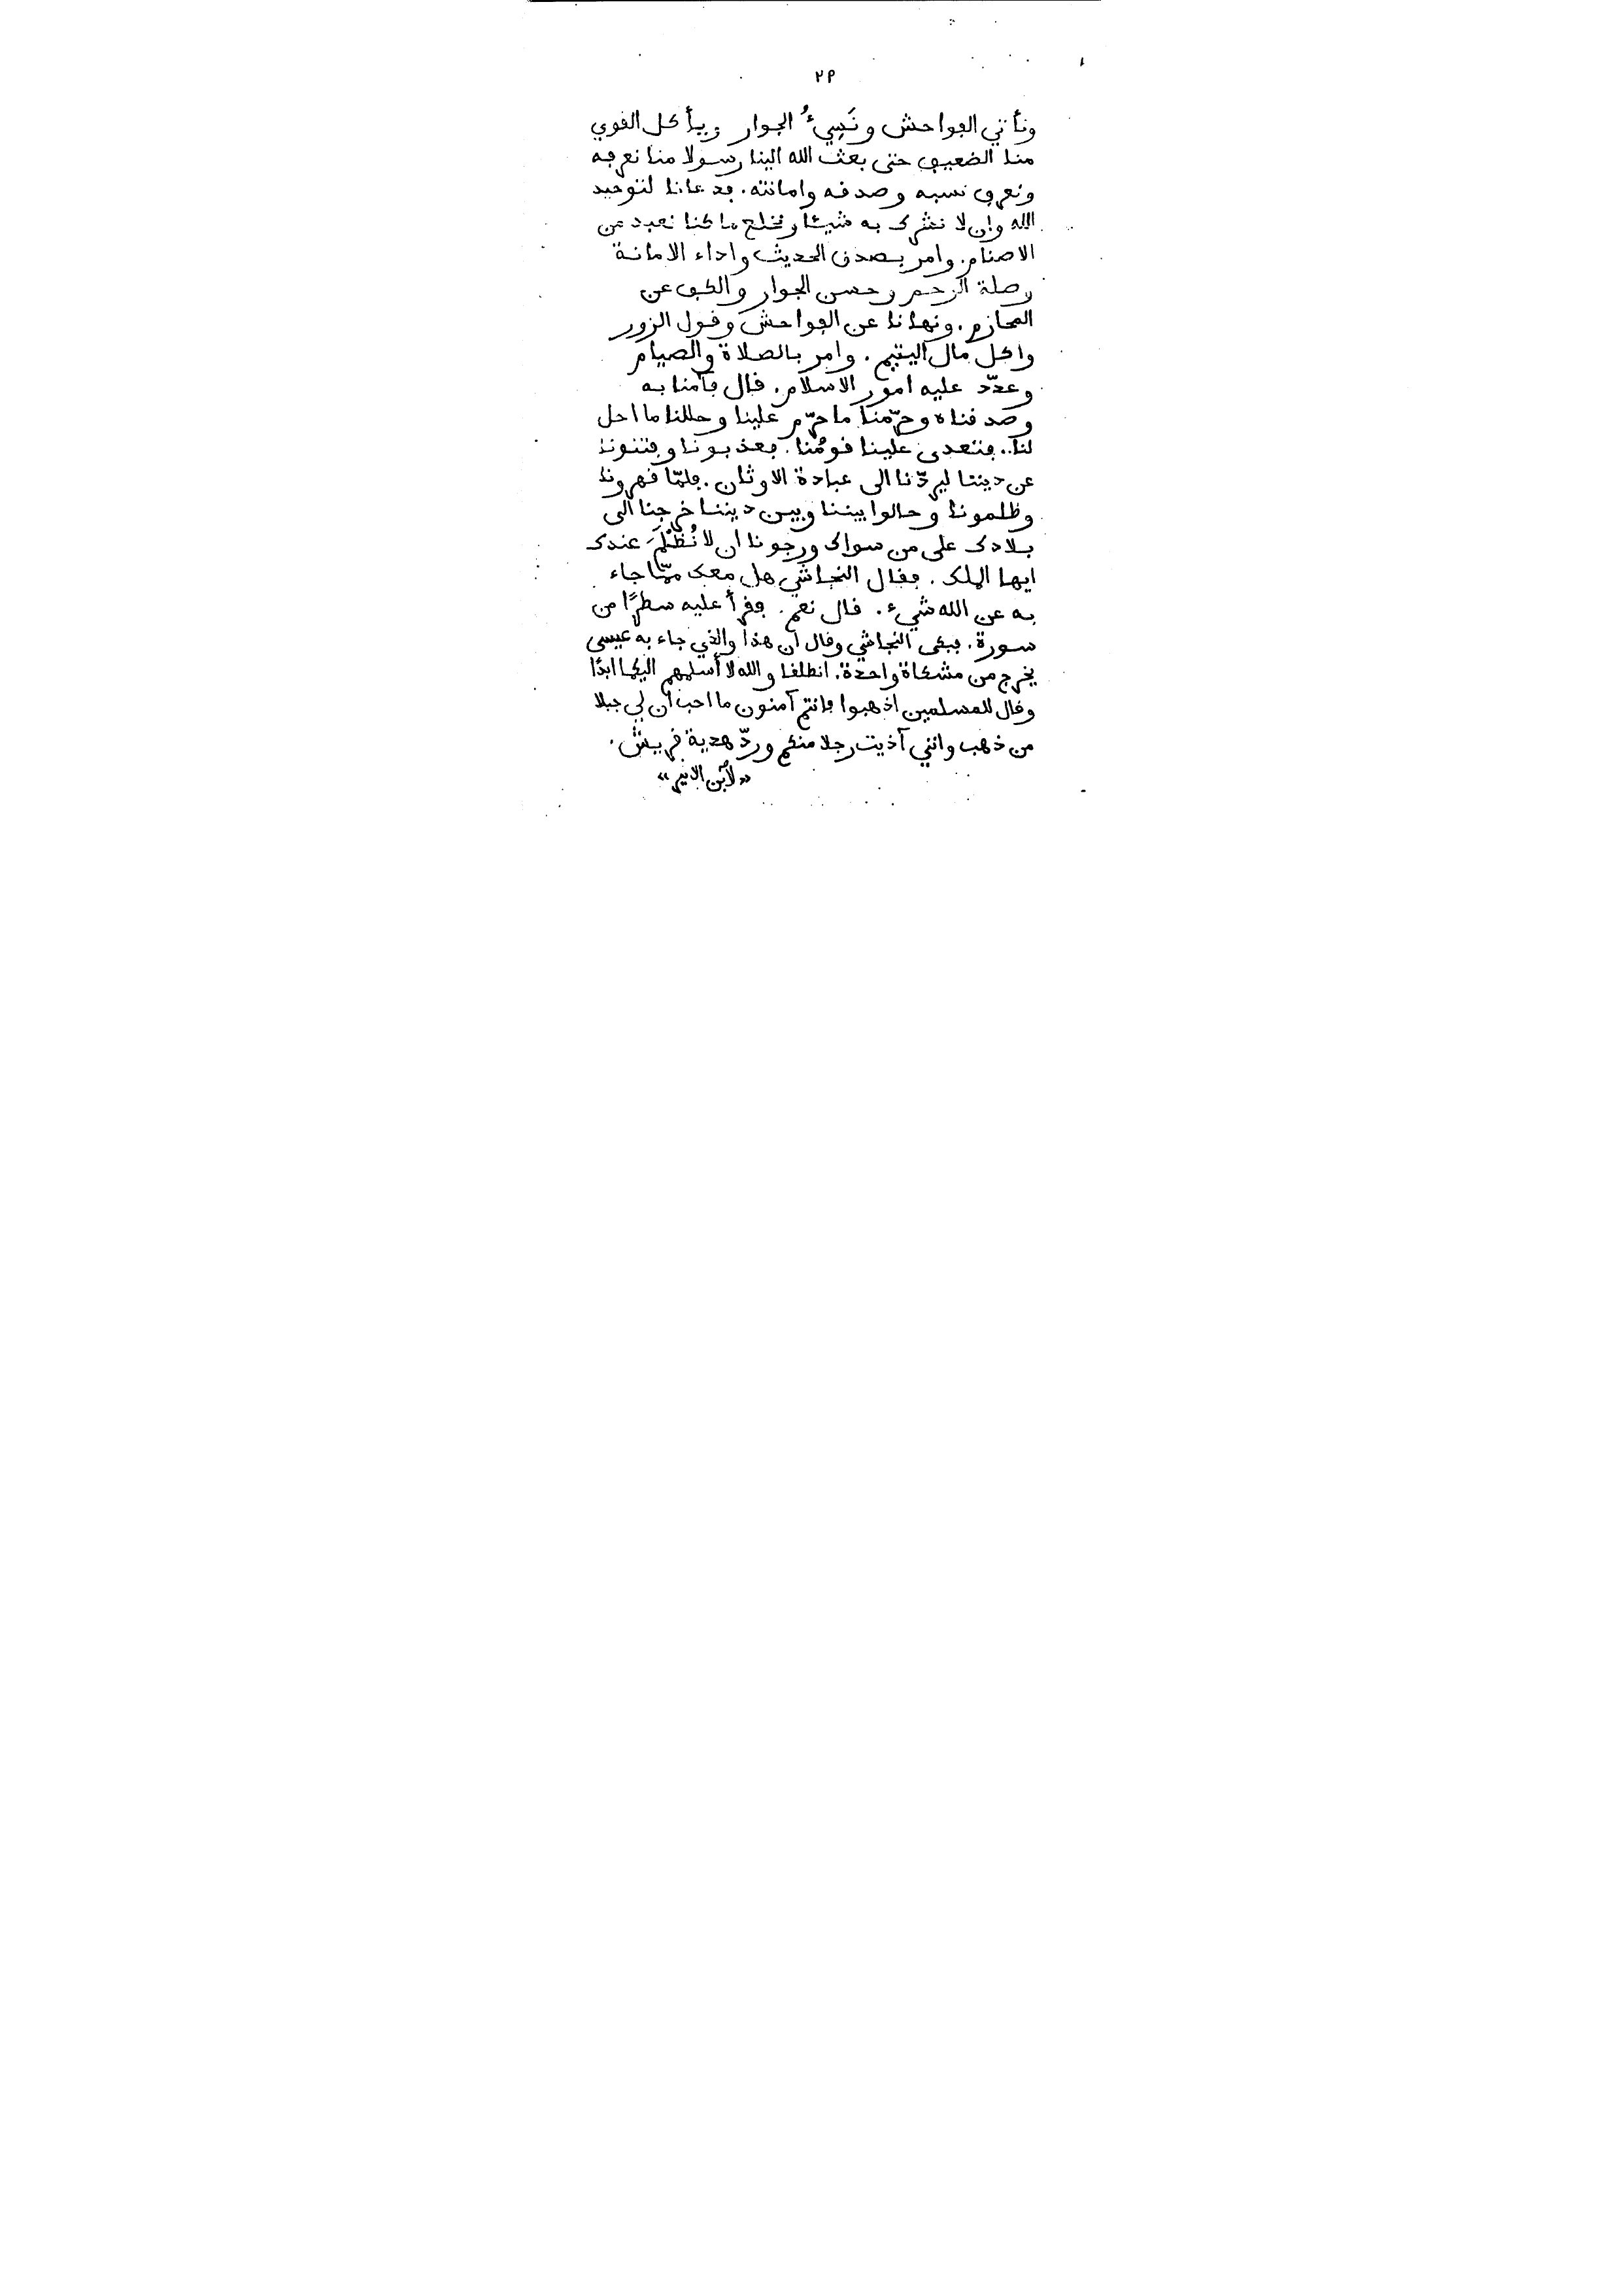 ٢٩
ونأتي الفواحش ونَسِيءُ الجوار ويأكل القوي
منا الضعيف حتى بعث الله الينا رسولا منا نعرفه
ونعرف نسبه وصدقه وامانته. فدعانا لتوحيد
الله وان لا نشرك به شيئا ونخلع ما كنا نعبد من
الاصنام. وامر بصدق الحديث واداء الامانة
وصلة الرحم وحسن الجوار والكف عن
المحارم. ونهانا عن الفواحش وقول الزور
واكل مال اليتيم. وامر بالصلاة والصيام
وعدّد عليه امور الاسلام. قال فآمنا به
وصدقناه وحرّمنا ما حرّم علينا وحللنا ما احل
لنا.. فتعدى علينا قومُنا. فعذبونا وفتنونا
عن ديننا ليردّنا الى عبادة الاوثان. فلمّا قهرونا
وظلمونا وحالوا بيننا وبين ديننا خرجنا الى
بلادك على من سواك ورجونا ان لا نُظْلَمَ عندك
ايها الملك. فقال النجاشي هل معك ممّا جاء
به عن الله شيء. قال نعم. فقرأ عليه سطرًا من
سورة. فبكى النجاشي وقال ان هذا والذي جاء به عيسى
يخرج من مشكاة واحدة. انطلقا والله لا أسلمهم اليكما ابدًا
وقال للمسلمين اذهبوا فانتم آمنون ما احب ان لي جبلا
من ذهب وانني آذيت رجلا منكم وردّ هدية قريش.
«لابن الاثير»